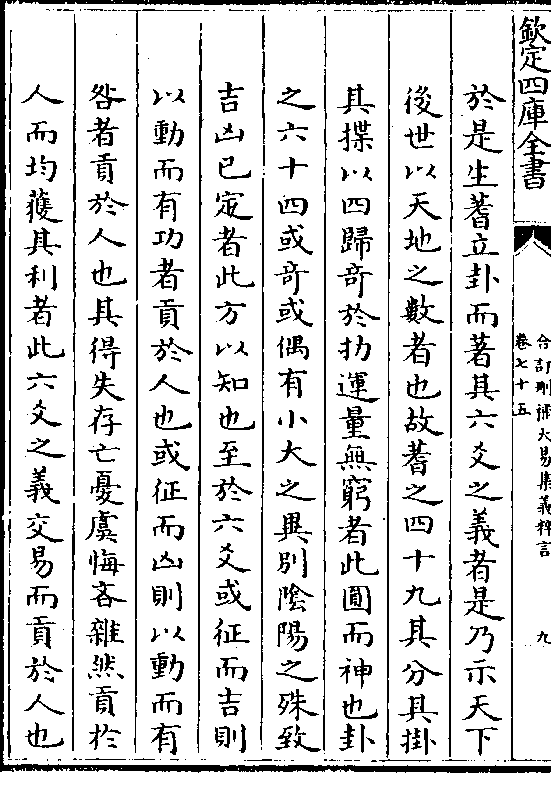 欽定四庫全書
合訂刪補大易集義粹言
卷七十五
九
於是生蓍立卦而著其六爻之義者是乃示天下
後世以天地之數者也故蓍之四十九其分其掛
其揲以四歸奇於扐運量無窮者此圓而神也卦
之六十四或奇或偶有小大之異別陰陽之殊致
吉凶已定者此方以知也至於六爻或征而吉則
以動而有功者貢於人也或征而凶則以動而有
咎者貢於人也其得失存亡憂虞悔吝雜然貢於
人而均獲其利者此六爻之義交易而貢於人也